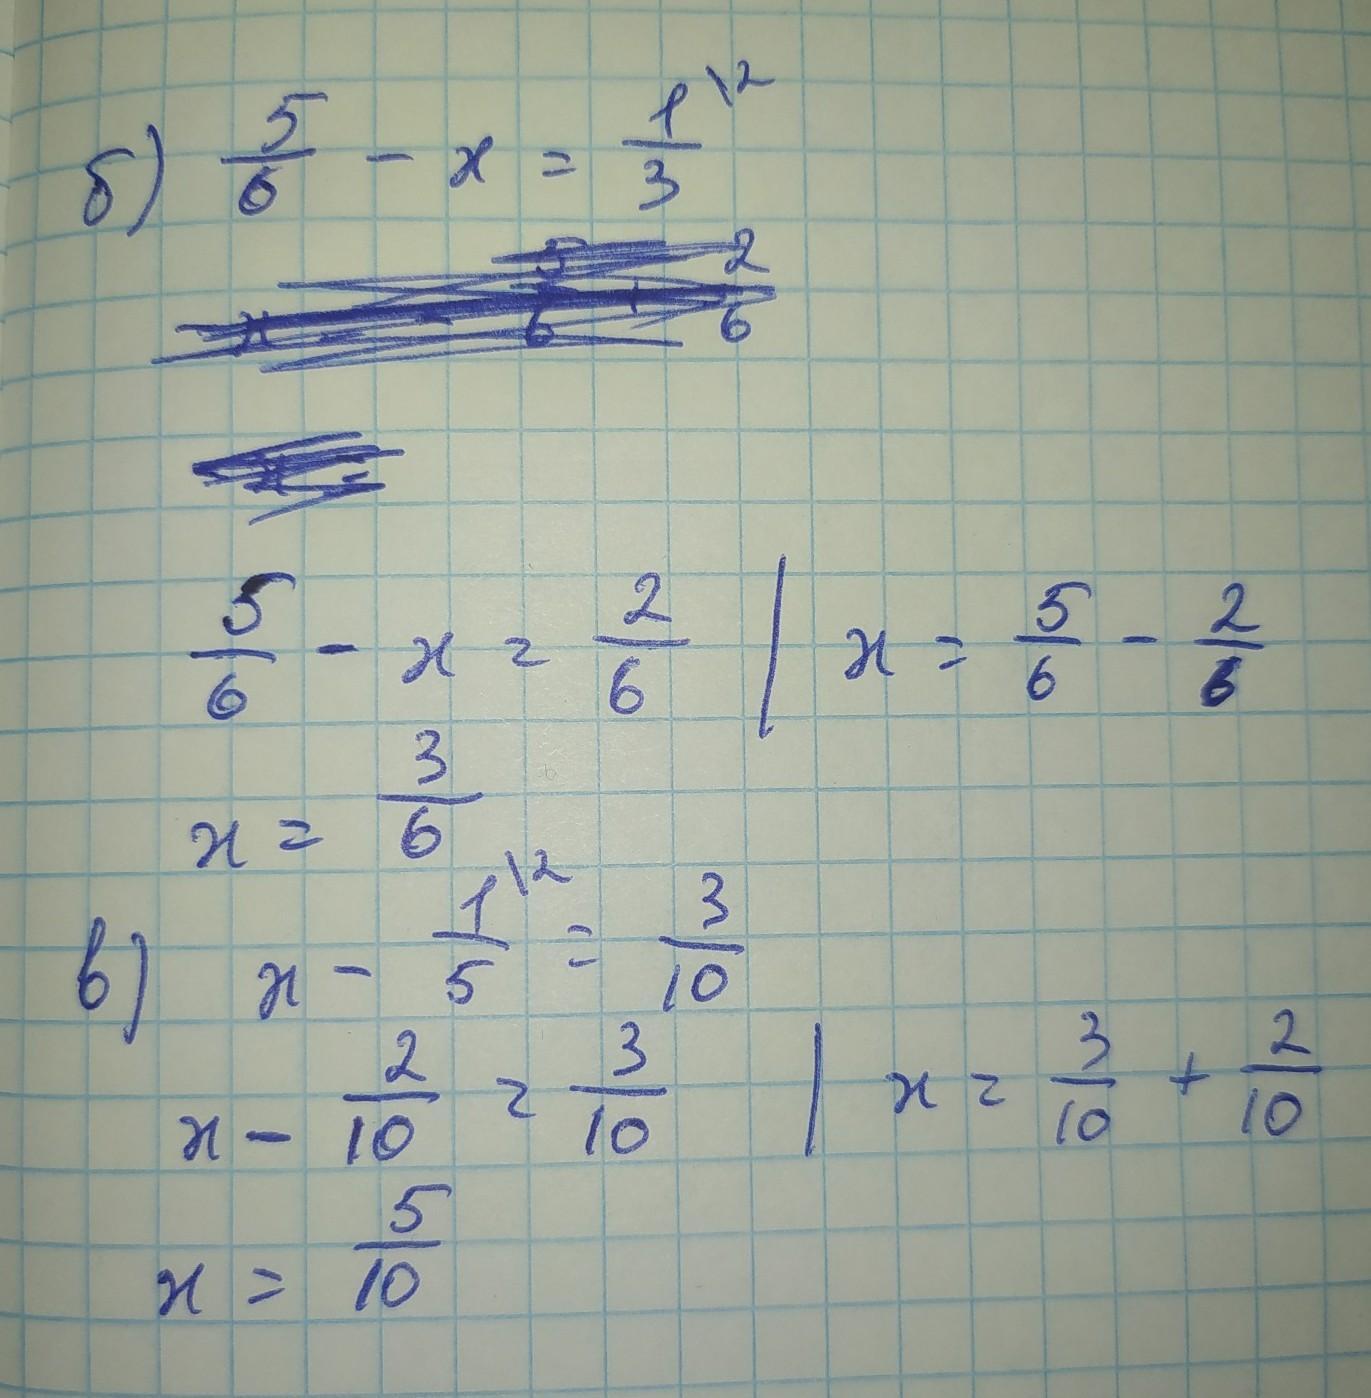 б) 5/6 - x = 1\2/3
5/6 - x = 2/6 | x = 5/6 - 2/6
x = 3/6
в) x - 1\2/5 = 3/10
x - 2/10 = 3/10 | x = 3/10 + 2/10
x = 5/10